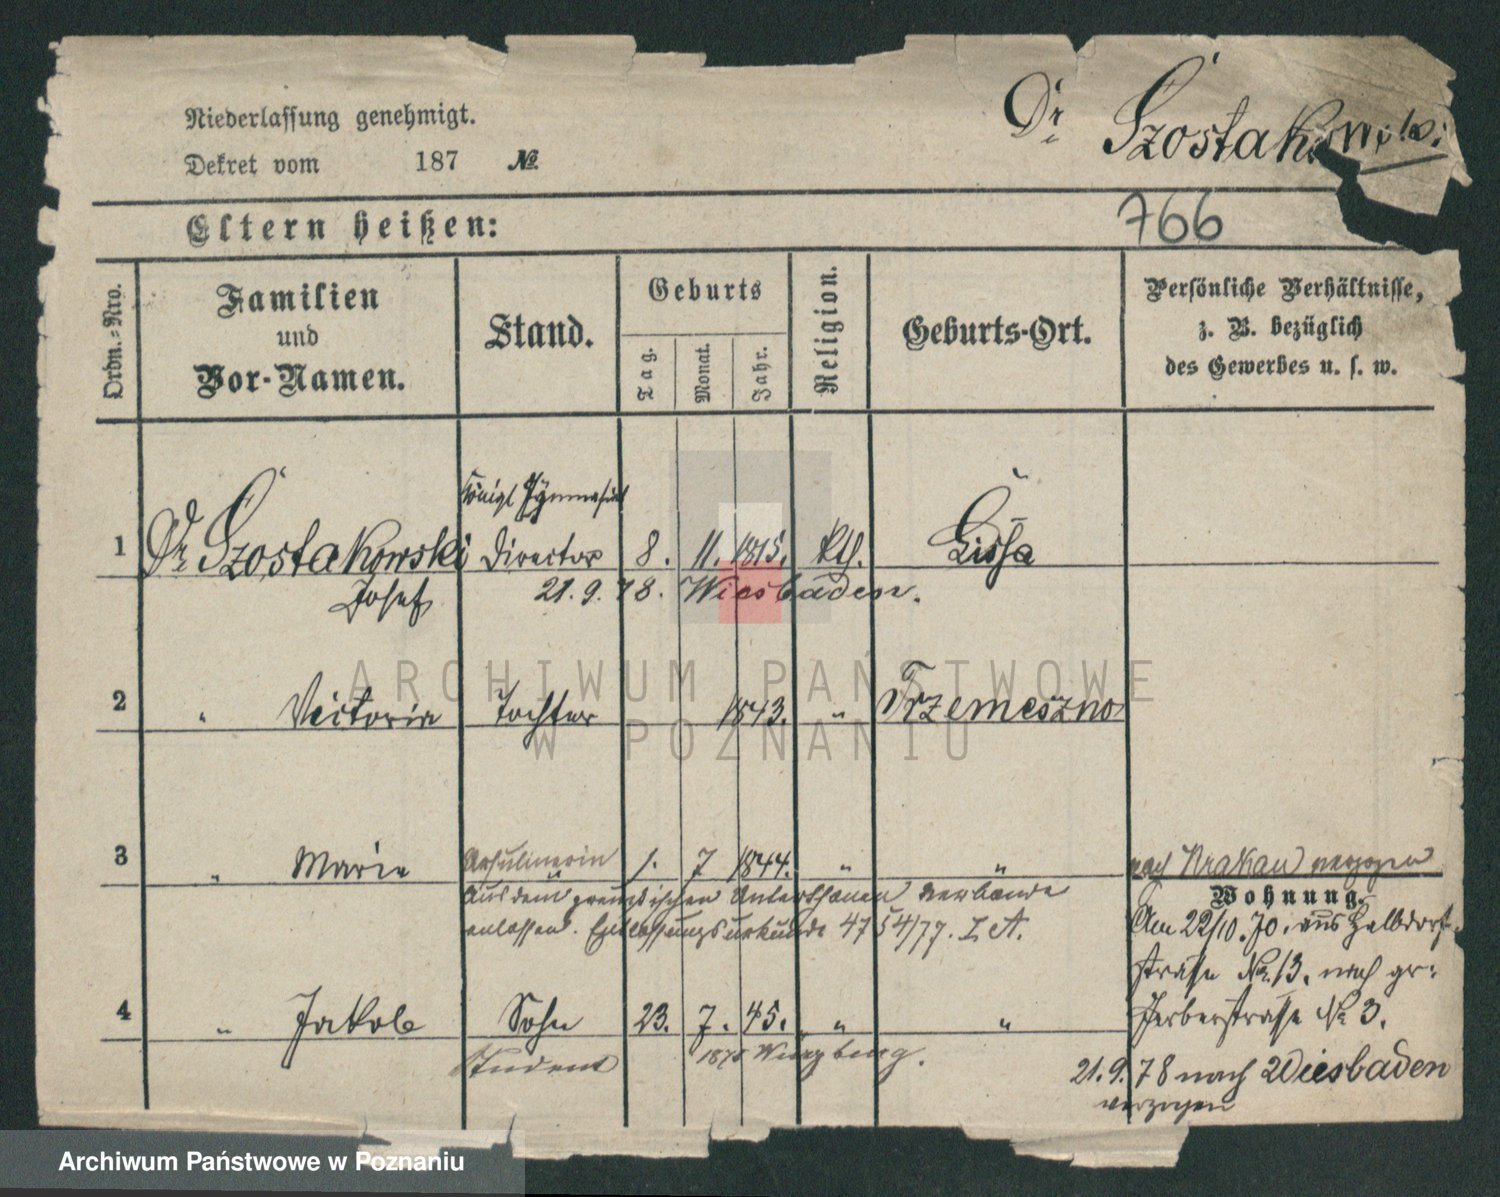 Niederlassung genehmigt.
Dekret vom 187 No
Dr. Szostakowski
Eltern heißen:
766
Ordn.-Nro.
Familien
und
Vor-Namen.
Stand.
Geburts
Tag.
Monat.
Jahr.
Religion.
Geburts-Ort.
Persönliche Verhältnisse,
z. B. bezüglich
des Gewerbes u. s. w.
Königl Gymnasial
1 Dr Szostakowski Director 8. 11. 1815. kth. Lissa
Josef 21.9.78. Wiesbaden.
2 " Victoria Tochter 1843. " Trzemeszno
3 " Marie Ursulinerin 1. 7 1844. " " nach Krakau verzogen
Aus dem preußischen Unterthanen verbande
entlassen. Entlassungsurkunde 4754/77. I A.
Wohnung.
Am 22/10.70. aus Halbdorf-
straße No. 13. nach gr:
Gerberstraße No 3.
4 " Jakob Sohn 23. 7. 45. " "
Student 1875 Würzburg.
21.9.78 nach Wiesbaden
verzogen
ARCHIWUM PAŃSTWOWE
W POZNANIU
Archiwum Państwowe w Poznaniu